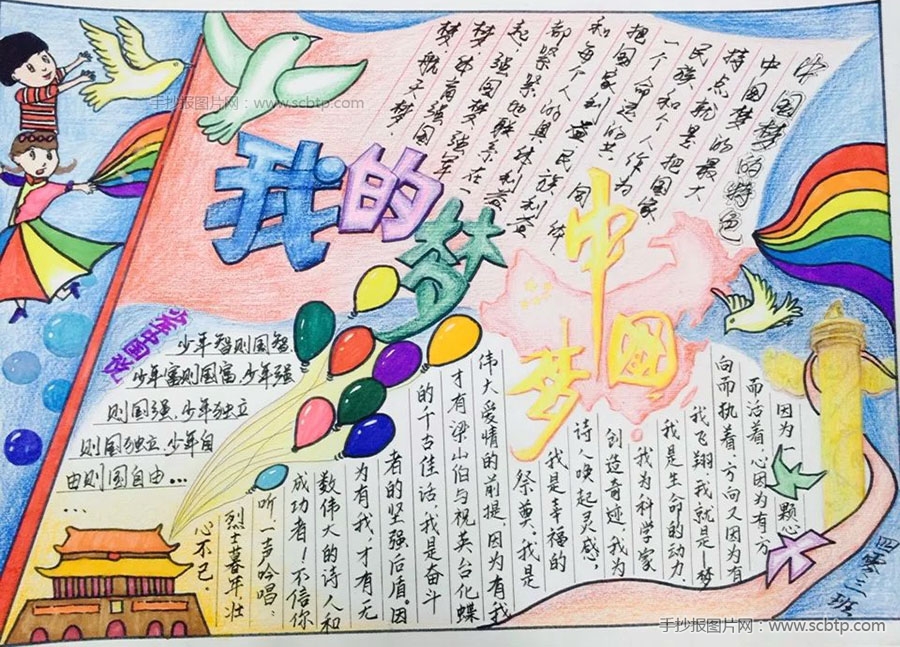 手抄报图片网：www.scbtp.com
我的梦
中国梦
中国梦的特色
中国梦的最大
特点就是把国家、
民族和个人作为
一个命运的共同体、
把国家利益民族利益
和每个人的具体利益
都紧紧地联系在一
起。强国梦、强军
梦、体育强国
梦、航天梦.
少年中国说
少年智则国智.
少年富则国富.少年强
则国强.少年独立
则国独立.少年自
由则国自由...
...
因为一颗心
而活着,心因为有方
向而执着,方向又因为有
我飞翔,我就是梦
我是生命的动力.
我为科学家
创造奇迹,我为
诗人唤起灵感,
我是幸福的
祭奠。我是
伟大爱情的前提,因为有我
才有梁山伯与祝英台化蝶
的千古佳话,我是奋斗
者的坚强后盾。因
为有我,才有无
数伟大的诗人和
成功者!不信你
听一声吟唱:
烈士暮年,壮
心不已.
四零三班
手抄报图片网：www.scbtp.com